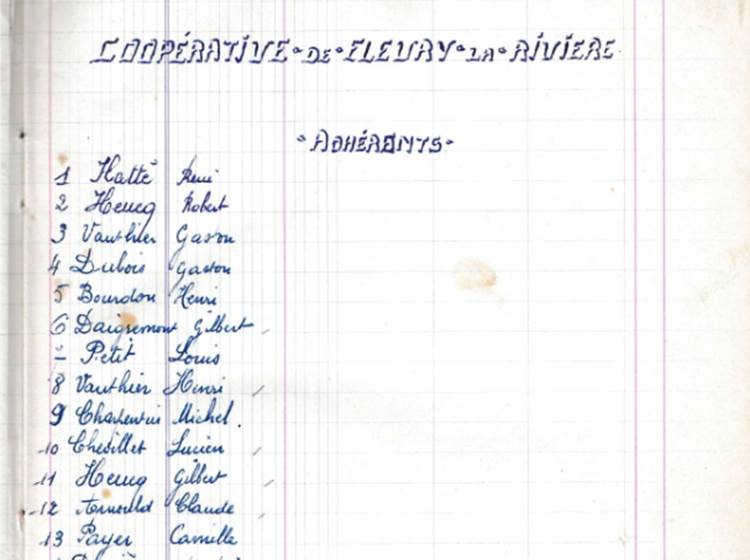 COOPÉRATIVE DE FLEURY LA RIVIERE
ADHÉRENTS
1 Hatté René
2 Heucq Robert
3 Vauthier Gaston
4 Dubois Gaston
5 Bourdon Henri
6 Daigremont Gilbert
Petit Louis
8 Vauthier Henri
9 Charpentier Michel
10 Chevillet Lucien
11 Heucq Gilbert
12 Arnould Claude
13 Payer Camille